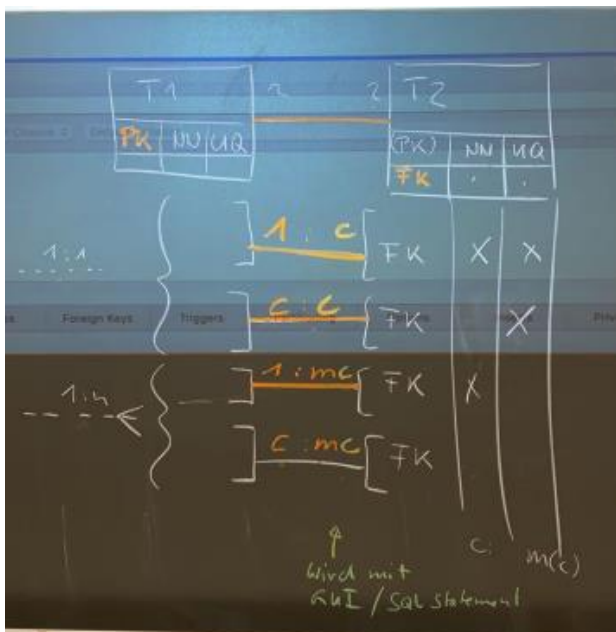 T1 2 2 T2
PK NN UQ
(PK) NN UQ
FK . .
1:1
1 : c FK X X
Foreign Keys Triggers
c : c FK X
1:n
1 : mc FK X
c : mc FK
c m(c)
↑
Wird mit
GUI / SQL Statement